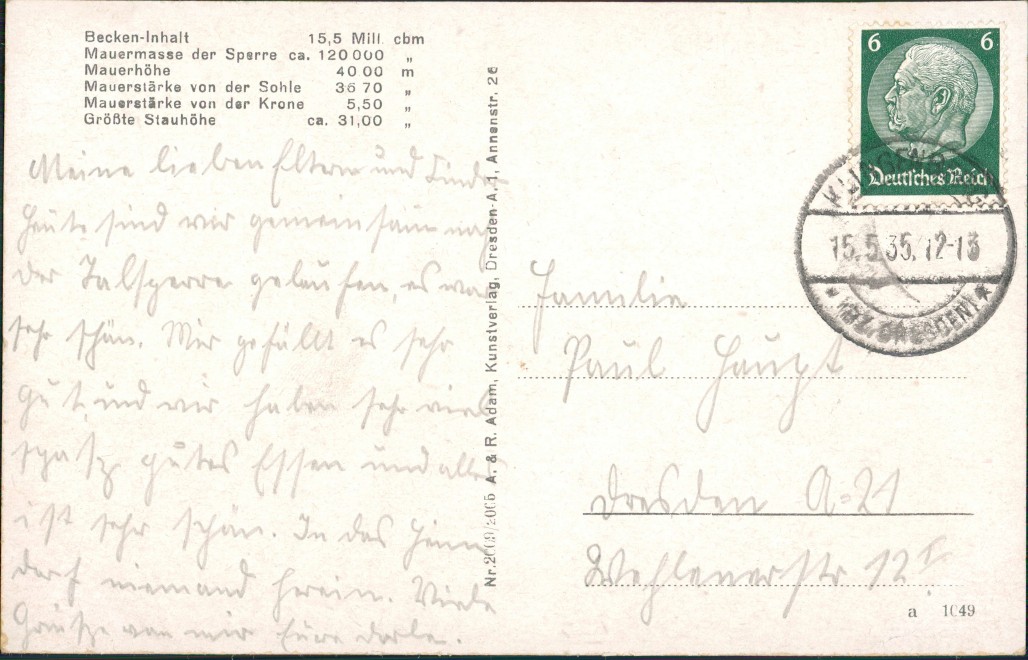 Becken-Inhalt 15,5 Mill. cbm
Mauermasse der Sperre ca. 120 000 „
Mauerhöhe 40 00 m
Mauerstärke von der Sohle 36 70 „
Mauerstärke von der Krone 5,50 „
Größte Stauhöhe ca. 31,00 „
Meine lieben Eltern und
Heute sind wir gemeinsam
der Talsperre gelaufen, es war
sehr schön. Mir gefällt es sehr
gut, und wir haben sehr viel
spasz, gutes Essen und alles
ist sehr schön. In das Heim
darf niemand herein. Viele
Grüsze von mir Eure
Nr. A. & R. Adam, Kunstverlag, Dresden-A. 1, Annenstr. 26
6 6
Deutsches Reich
15.5.35.12-13
* (BZ. DRESDEN) *
Familie
Paul Haupt
Dresden A=21
Wehlenerstr 12
a 1049